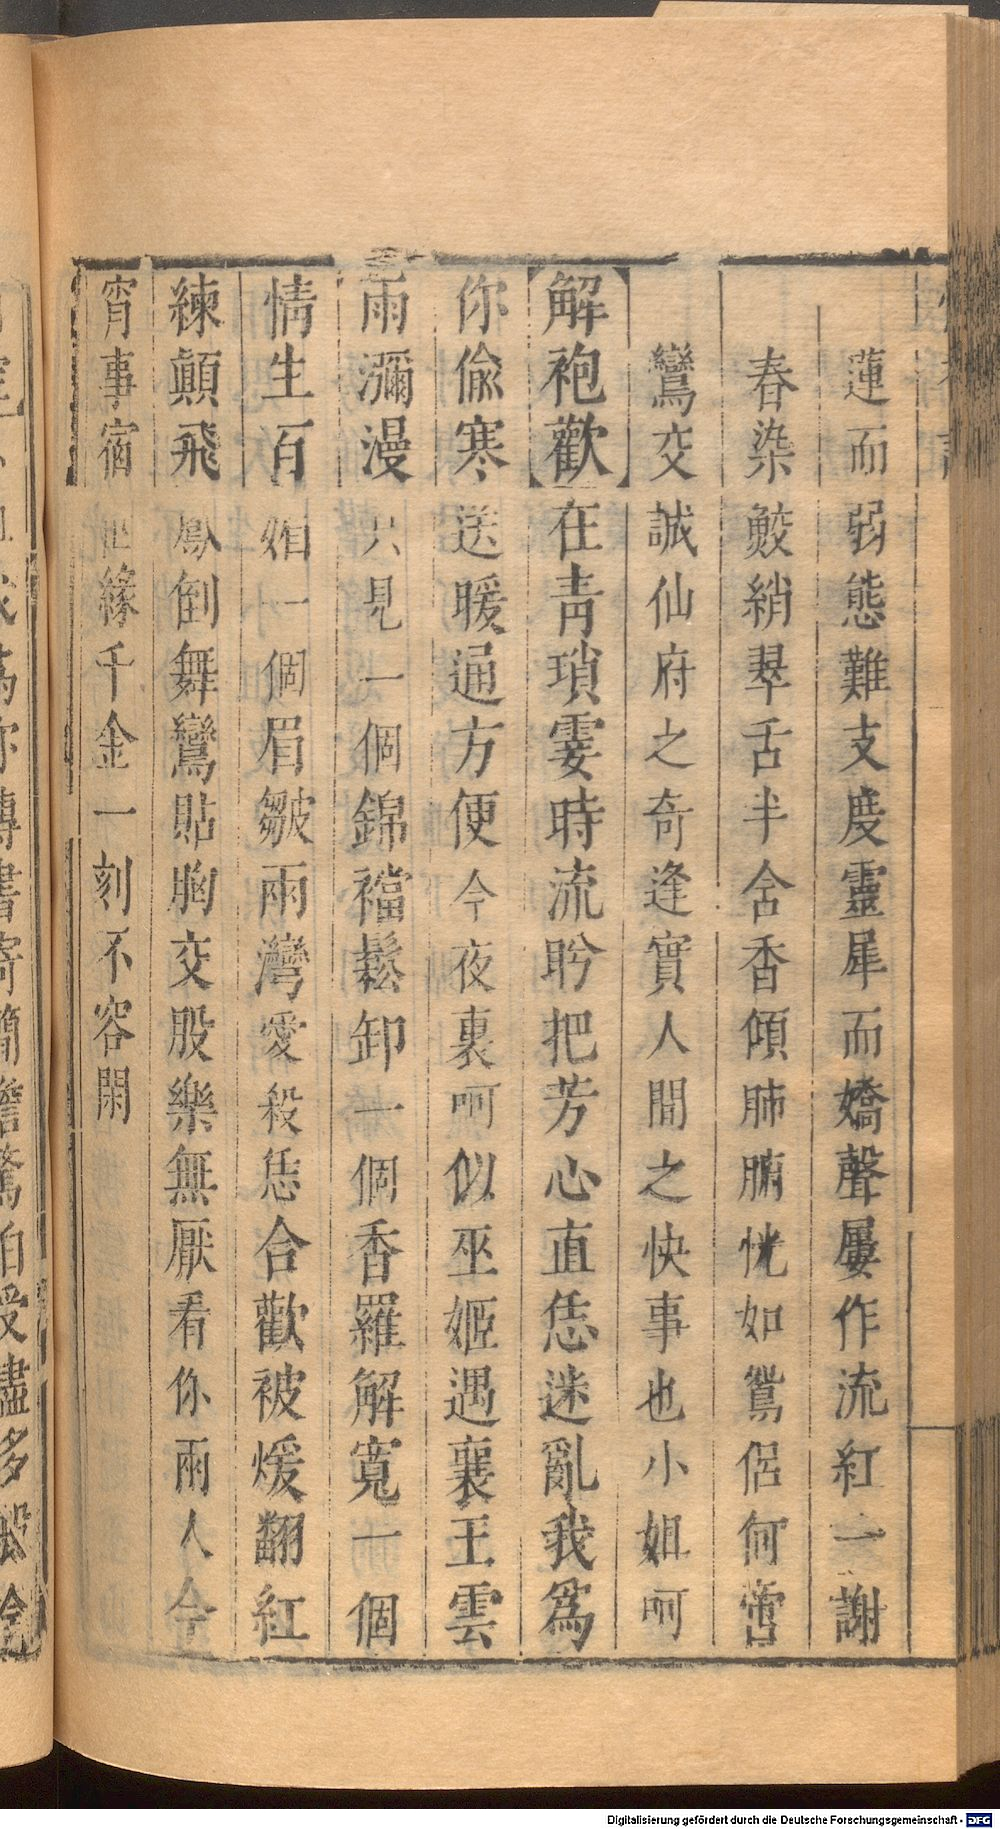 蓮而弱態難支度靈犀而嬌聲屢作流紅一謝
春染鮫綃翠舌半含香傾肺腑恍如鴛侶何啻
鸞交誠仙府之奇逢實人間之快事也小姐呵
解袍歡在青瑣霎時流盻把芳心直恁迷亂我爲
你偸寒送暖通方便今夜裏呵似巫姬遇襄王雲
雨瀰漫只見一個錦襠鬆卸一個香羅解寬一個
情生百媚一個眉皺兩灣愛殺恁合歡被煖翻紅
練顛飛鳳倒舞鸞貼胸交股樂無厭看你兩人今
宵事宿世緣千金一刻不容閑
Digitalisierung gefördert durch die Deutsche Forschungsgemeinschaft - DFG